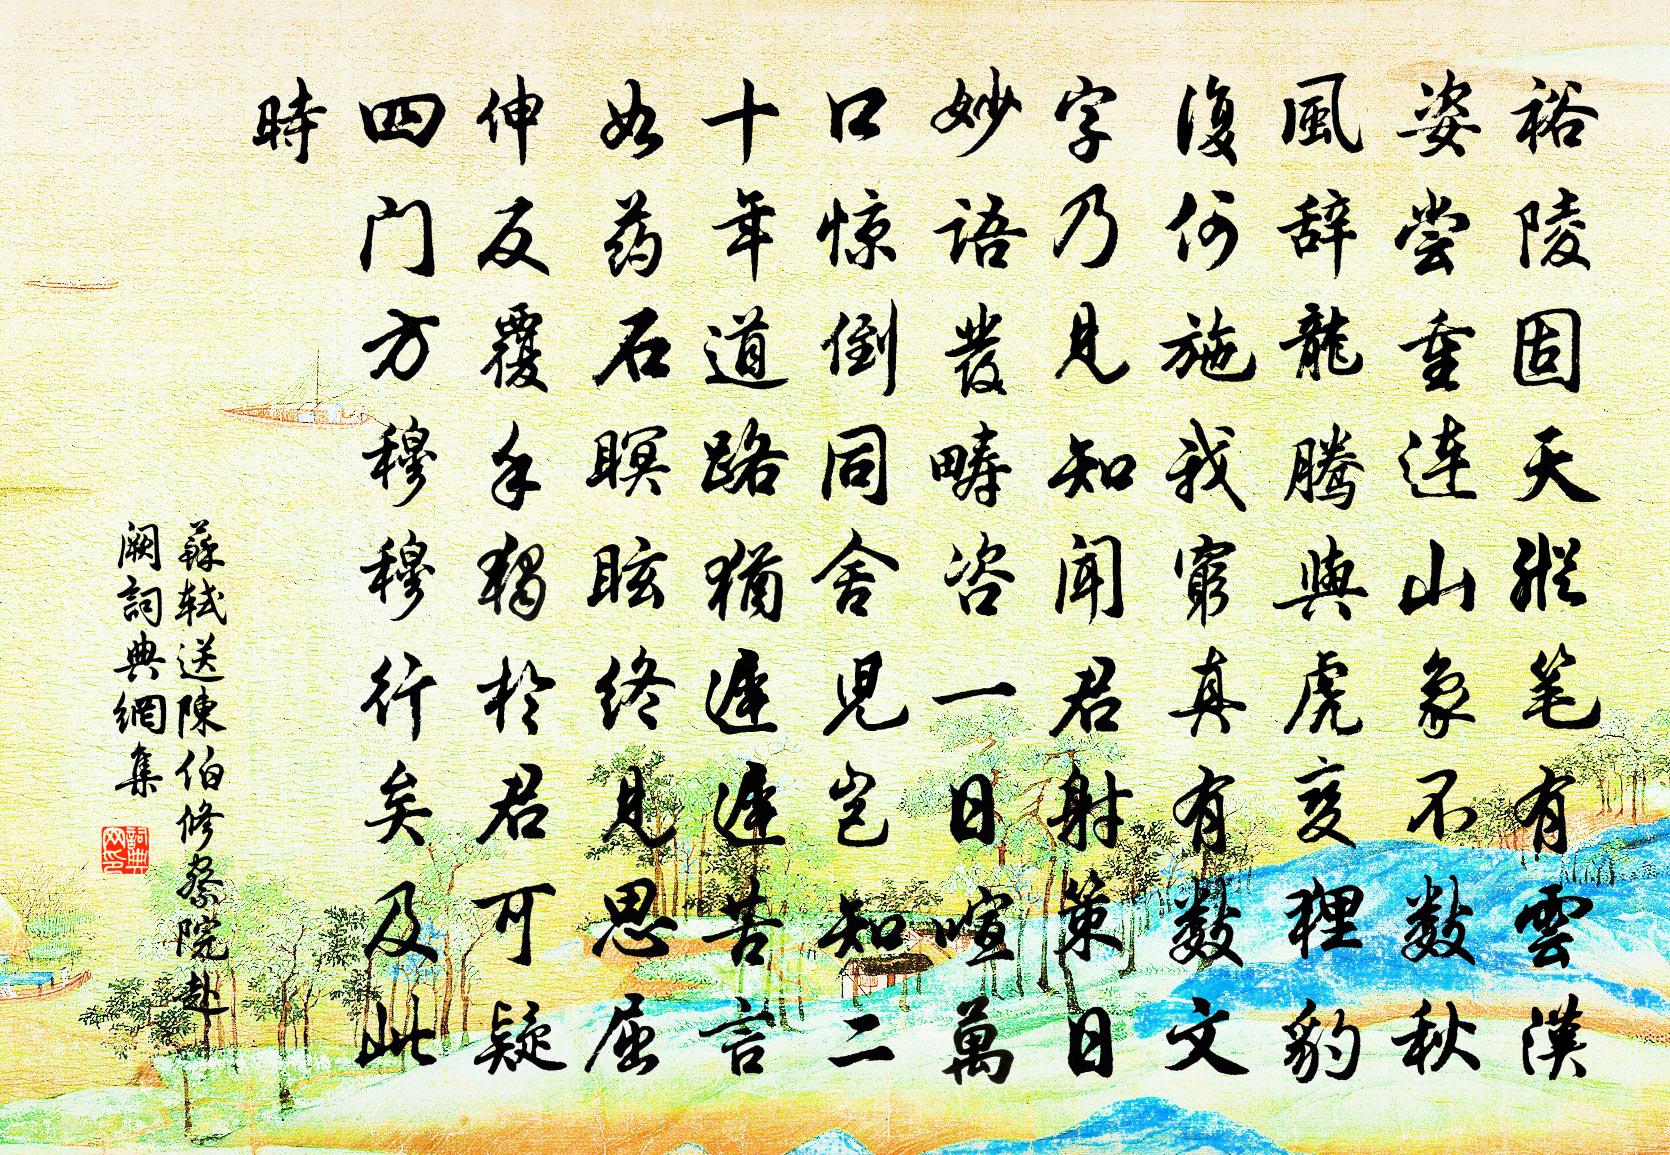 裕陵固天縱笔有雲漢
姿尝重連山象不數秋
風辞龍腾與虎变狸豹
復何施我窮真有數文
字乃見知聞君射策日
妙語發疇咨一日喧萬
口惊倒同舍児岂知二
十年道路猶遲遲苦言
如药石瞑眩终見思屈
伸反覆手獨於君可疑
四门方穆穆行矣及此
時
蘇軾送陳伯修察院赴
阙詞典網集
詞典网印